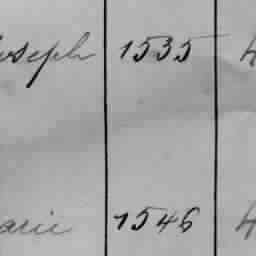 oseph 1535 4
arie 1546 4